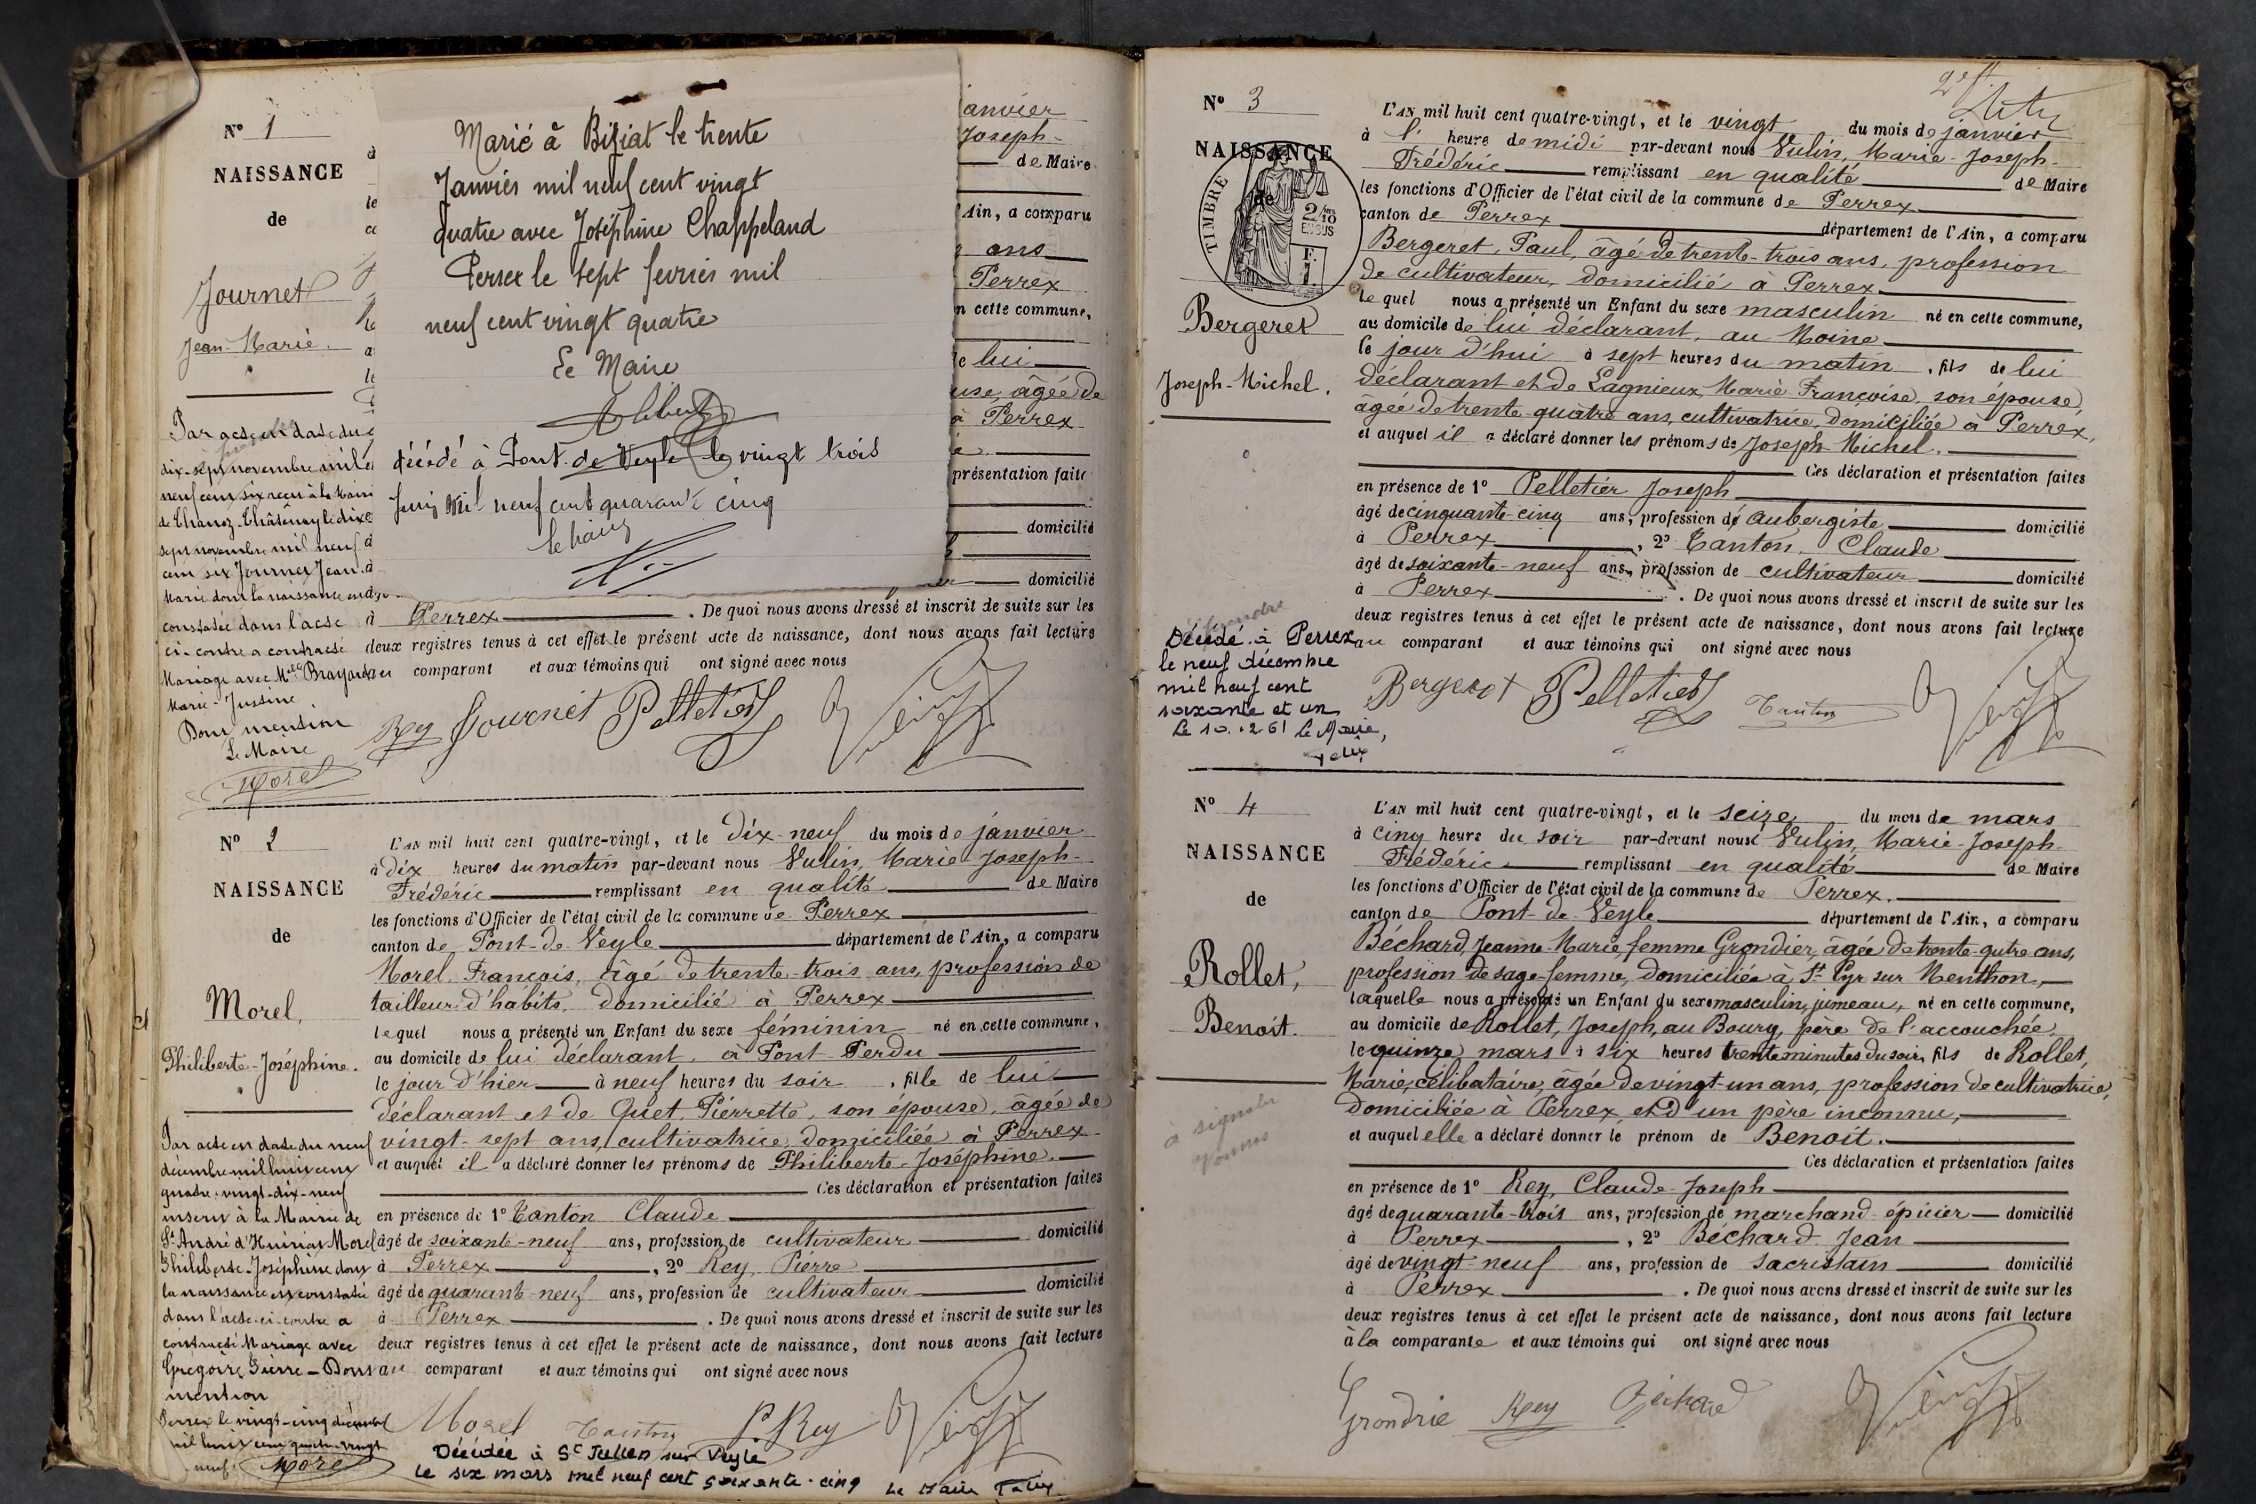 N° 1
NAISSANCE
de
Journet
Jean-Marie.
Par acte en date du
dix-sept novembre mil
neuf cent six reçu à la Mairie
de Chanoz-Châtenay le dix
sept novembre mil neuf
cent six Journet Jean
Marie dont la naissance est
constatée dans l'acte
ci-contre a contracté
Mariage avec Melle Brayard
Marie-Justine
Dont mention
Le Maire
Morel
Marié à Biziat le trente
Janvier mil neuf cent vingt
quatre avec Joséphine Chappeland
Perrex le sept fevrier mil
neuf cent vingt quatre
Le Maire
décédé à Pont-de-Veyle le vingt trois
Juin mil neuf cent quarante cinq
le Maire
anvier
Joseph-
de Maire
Ain, a comparu
ans
Perrex
n cette commune,
de lui
use, âgée de
à Perrex
présentation faite
domicilié
domicilié
à Perrex . De quoi nous avons dressé et inscrit de suite sur les
deux registres tenus à cet effet le présent acte de naissance, dont nous avons fait lecture
au comparant et aux témoins qui ont signé avec nous
Rey Journet Pelletier Vulin
N° 2
NAISSANCE
de
Morel,
Philiberte-Joséphine.
L'AN mil huit cent quatre-vingt, et le dix-neuf du mois de janvier
à dix heures du matin par-devant nous Vulin, Marie-Joseph-
Frédéric remplissant en qualité de Maire
les fonctions d'Officier de l'état civil de la commune de Perrex
canton de Pont-de-Veyle département de l'Ain, a comparu
Morel, François, âgé de trente-trois ans, profession de
tailleur d'habits, domicilié à Perrex
lequel nous a présenté un Enfant du sexe féminin né en cette commune,
au domicile de lui déclarant, à Pont-Perdu
le jour d'hier à neuf heures du soir , fille de lui
déclarant et de Quet, Pierrette, son épouse, âgée de
vingt-sept ans, cultivatrice, domiciliée à Perrex
et auquel il a déclaré donner les prénoms de Philiberte-Joséphine.
Ces déclaration et présentation faites
en présence de 1° Tanton Claude
âgé de soixante-neuf ans, profession de cultivateur domicilié
à Perrex , 2° Rey, Pierre
âgé de quarante-neuf ans, profession de cultivateur domicilié
à Perrex . De quoi nous avons dressé et inscrit de suite sur les
deux registres tenus à cet effet le présent acte de naissance, dont nous avons fait lecture
au comparant et aux témoins qui ont signé avec nous
Morel Tanton P. Rey Vulin
Par acte en date du neuf
décembre mil huit cent
quatre-vingt-dix-neuf
inscrit à la Mairie de
St André d'Huiriat Morel
Philiberte-Joséphine dont
la naissance est constatée
dans l'acte ci-contre a
contracté Mariage avec
Gregoire Pierre - Dont
mention
Perrex le vingt-cinq décembre
mil huit cent quatre-vingt
neuf. Morel
Décédée à St Julien sur Veyle
le six mars mil neuf cent soixante-cinq Le Maire
N° 3
NAISSANCE
de
TIMBRE
2/10
EN SUS
F.
1.
Bergeret
Joseph-Michel.
L'AN mil huit cent quatre-vingt, et le vingt du mois de janvier
à l' heure de midi par-devant nous Vulin, Marie-Joseph-
Frédéric remplissant en qualité de Maire
les fonctions d'Officier de l'état civil de la commune de Perrex
canton de Perrex département de l'Ain, a comparu
Bergeret, Paul, âgé de trente-trois ans, profession
de cultivateur, domicilié à Perrex
lequel nous a présenté un Enfant du sexe masculin né en cette commune,
au domicile de lui déclarant, au Moine
le jour d'hui à sept heures du matin , fils de lui
déclarant et de Lagnieux, Marie Françoise, son épouse,
âgée de trente-quatre ans, cultivatrice, domiciliée à Perrex,
et auquel il a déclaré donner les prénoms de Joseph-Michel.
Ces déclaration et présentation faites
en présence de 1° Pelletier Joseph
âgé de cinquante-cinq ans, profession de aubergiste domicilié
à Perrex , 2° Tanton, Claude
âgé de soixante-neuf ans, profession de cultivateur domicilié
à Perrex . De quoi nous avons dressé et inscrit de suite sur les
deux registres tenus à cet effet le présent acte de naissance, dont nous avons fait lecture
au comparant et aux témoins qui ont signé avec nous
Bergeret Pelletier Tanton Vulin
Décédé à Perrex
le neuf décembre
mil neuf cent
soixante et un
Le 10.12.61 le Maire,
N° 4
NAISSANCE
de
Rollet,
Benoit.
à signaler
L'AN mil huit cent quatre-vingt, et le seize du mois de mars
à cinq heure du soir par-devant nous Vulin, Marie-Joseph-
Frédéric remplissant en qualité de Maire
les fonctions d'Officier de l'état civil de la commune de Perrex.
canton de Pont-de-Veyle département de l'Ain, a comparu
Béchard, Jeanne-Marie, femme Grondier, âgée de trente-qutre ans,
profession de sage-femme, domiciliée à St Cyr sur Menthon,
laquelle nous a présenté un Enfant du sexe masculin, jumeau, né en cette commune,
au domicile de Rollet, Joseph, au Bourg, père de l'accouchée
le quinze mars à six heures trente minutes du soir, fils de Rollet,
Marie, célibataire, âgée de vingt-un ans, profession de cultivatrice,
domiciliée à Perrex et d'un père inconnu,
et auquel elle a déclaré donner le prénom de Benoit.
Ces déclaration et présentation faites
en présence de 1° Rey, Claude-Joseph
âgé de quarante-trois ans, profession de marchand-épicier domicilié
à Perrex , 2° Béchard Jean
âgé de vingt-neuf ans, profession de sacristain domicilié
à Perrex . De quoi nous avons dressé et inscrit de suite sur les
deux registres tenus à cet effet le présent acte de naissance, dont nous avons fait lecture
à la comparante et aux témoins qui ont signé avec nous
Grondrie Rey Béchard Vulin